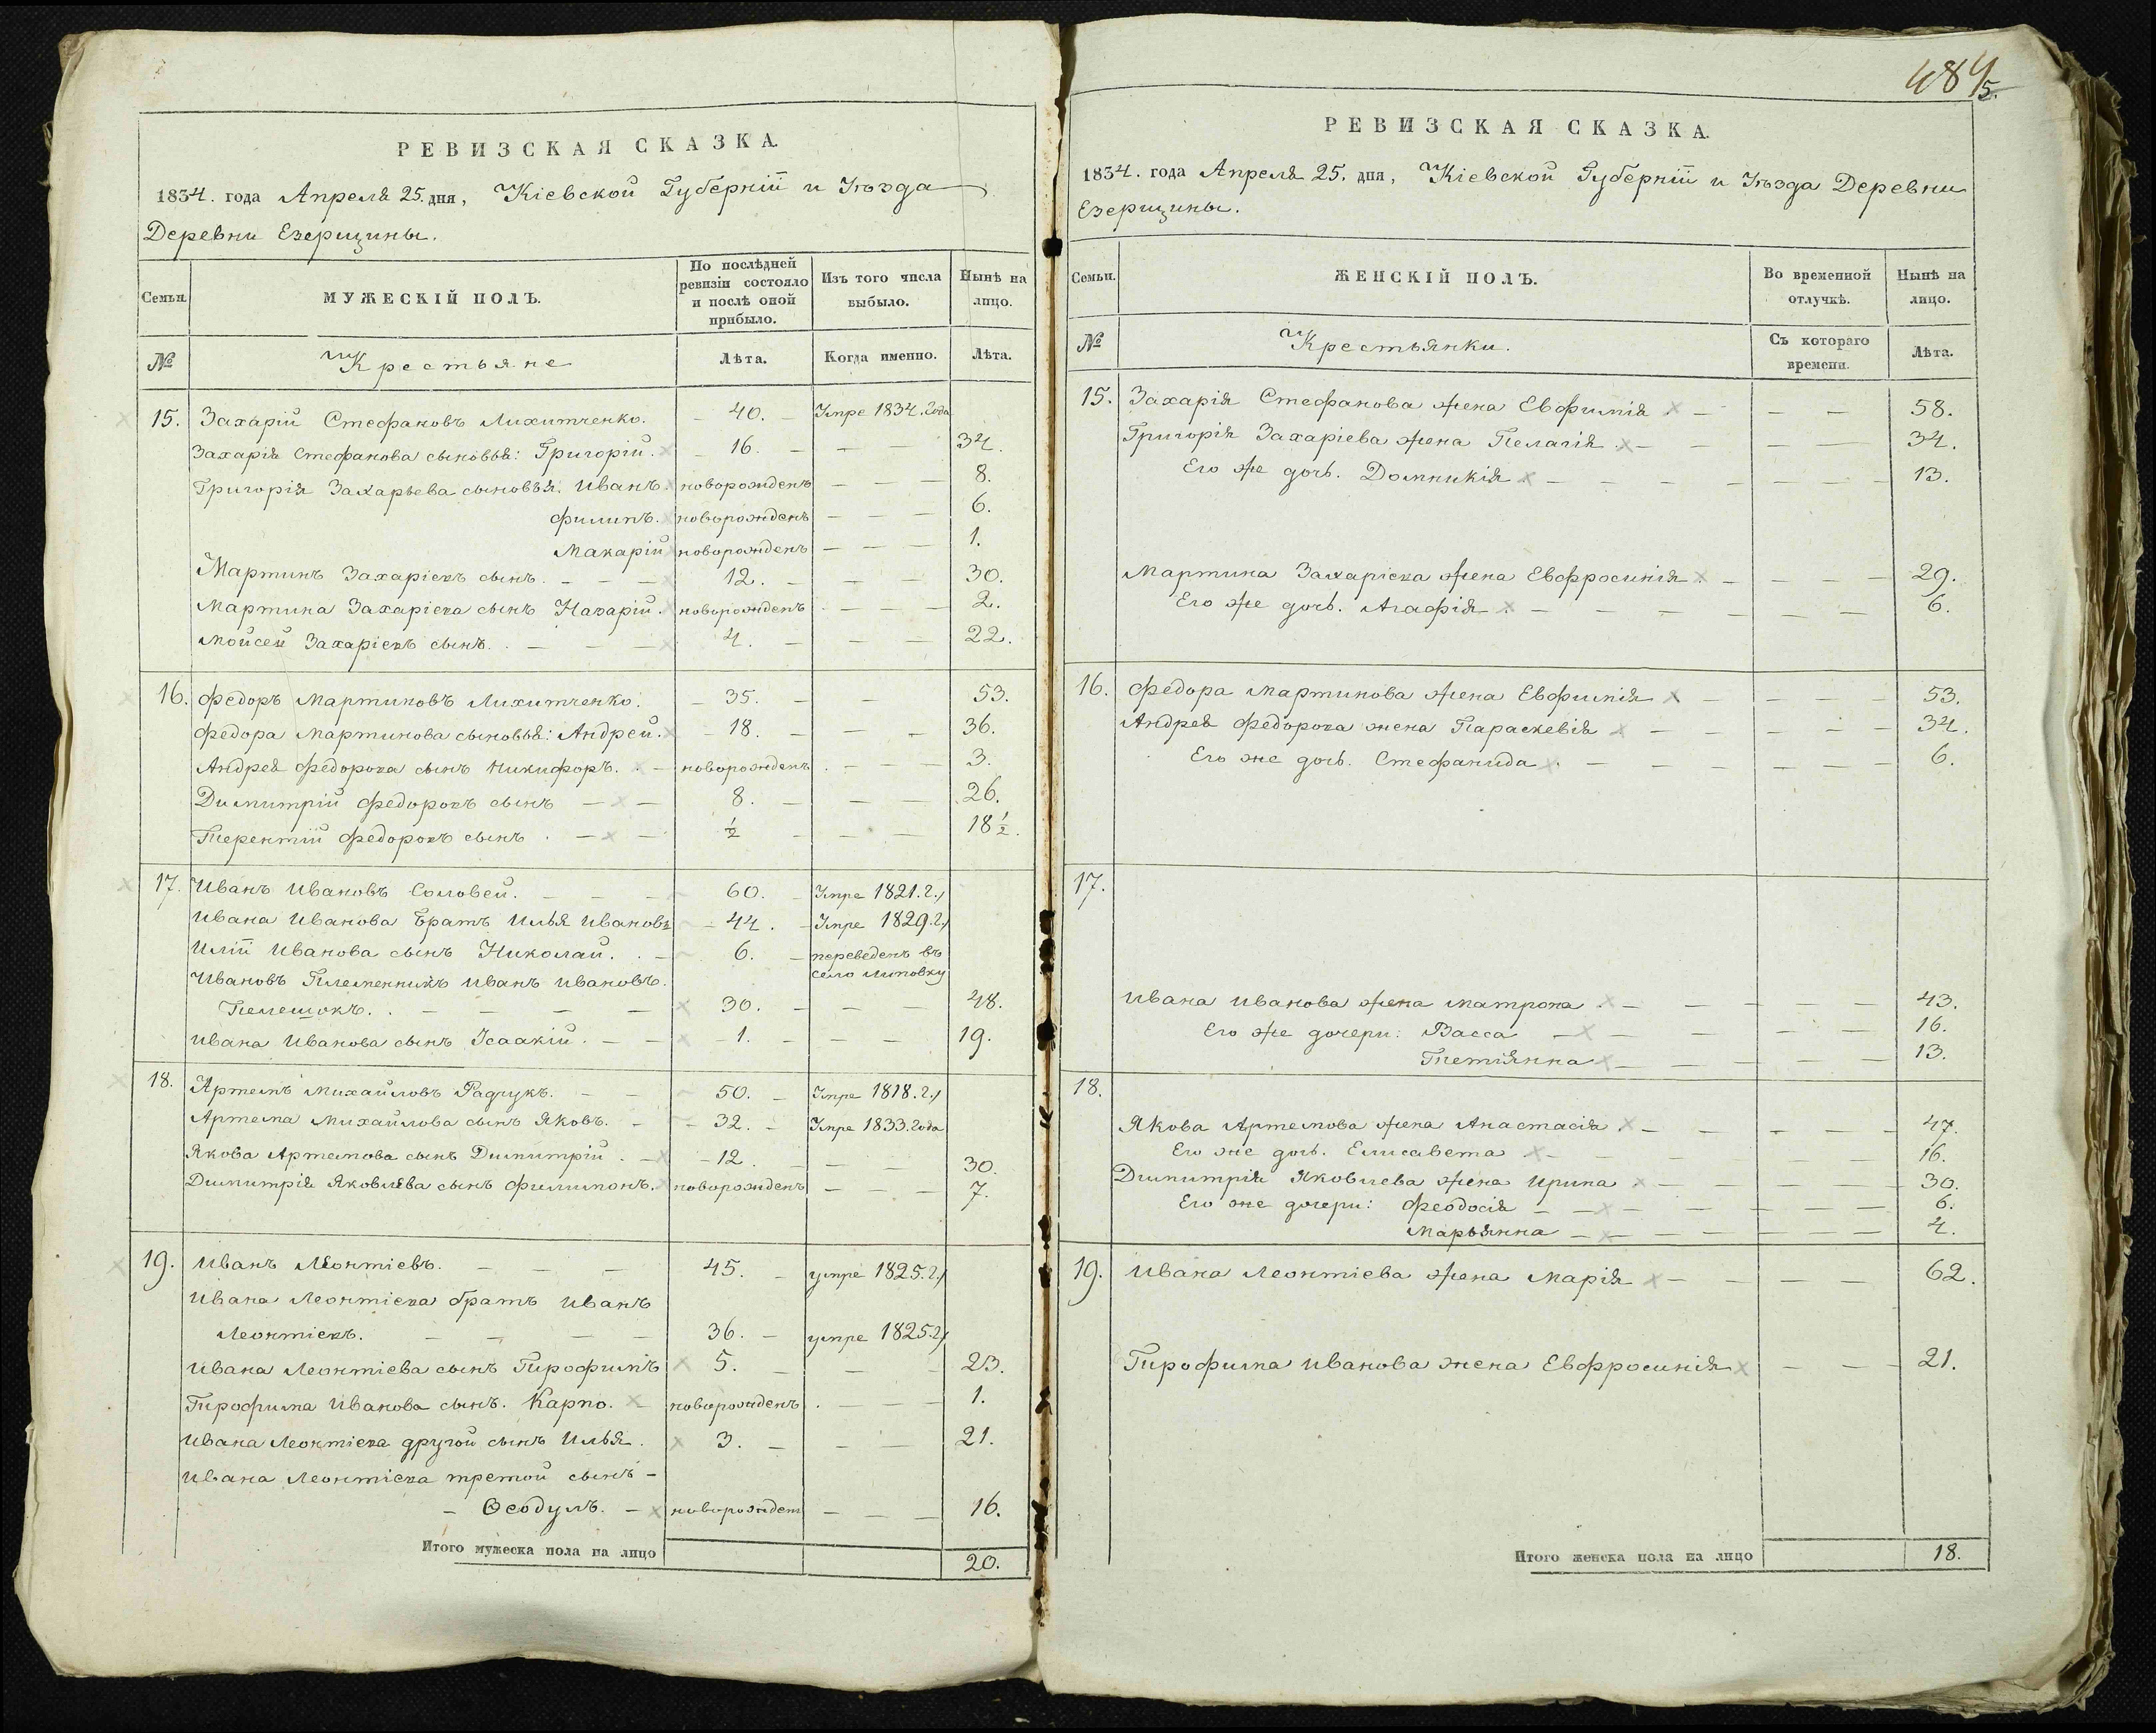 РЕВИЗСКАЯ СКАЗКА.
1834. года Апреля 25. дня, Кіевской Губерніи и Уѣзда
Деревни Езерищины.
Семьи. МУЖЕСКІЙ ПОЛЪ. По послѣдней ревизіи состояло и послѣ оной прибыло. Изъ того числа выбыло. Нынѣ на лицо.
№ Крестьяне Лѣта. Когда именно. Лѣта.
15. Захарій Стефановъ Лихитченко. 40. Умре 1834. года
Захарія Стефанова сыновья: Григорій. 16. 34.
Григорія Захарьева сыновья. Иванъ. новорожденъ 8.
Филипъ. новорожденъ 6.
Макарій новорожденъ 1.
Мартинъ Захаріевъ сынъ. 12. 30.
Мартина Захаріева сынъ Назарій. новорожденъ 2.
Мойсей Захаріевъ сынъ. 4. 22.
16. Федоръ Мартиновъ Лихитченко. 35. 53.
Федора Мартинова сыновья: Андрей. 18. 36.
Андрея Федорова сынъ Никифоръ. новорожденъ 3.
Димитрій Федоровъ сынъ 8. 26.
Терентій Федоровъ сынъ 1/2 18 1/2.
17. Иванъ Ивановъ Соловей. 60. Умре 1821. г.
Ивана Иванова Братъ Илья Ивановъ 44. Умре 1829. г.
Иліи Иванова сынъ Николай. 6. переведенъ въ
село Липовку
Ивановъ Племенникъ Иванъ Ивановъ.
Пелешокъ. 30. 48.
Ивана Иванова сынъ Ісаакій. 1. 19.
18. Артемъ Михайловъ Радчукъ. 50. Умре 1818. г.
Артема Михайлова сынъ Яковъ. 32. Умре 1833. года
Якова Артемова сынъ Димитрій 12. 30.
Димитрія Яковлева сынъ Филимонъ. новорожденъ 7.
19. Иванъ Леонтіевъ. 45. умре 1825. г.
Ивана Леонтіева братъ Иванъ
Леонтіевъ. 36. умре 1825. г.
Ивана Леонтіева сынъ Трофимъ 5. 23.
Трофима Иванова сынъ. Карпо. новорожденъ 1.
Ивана Леонтіева другой сынъ Илья. 3. 21.
Ивана Леонтіева третой сынъ
Ѳеодулъ. новорожден 16.
Итого мужеска пола на лицо 20.
484
5.
РЕВИЗСКАЯ СКАЗКА.
1834. года Апреля 25. дня, Кіевской Губерніи и Уѣзда Деревни
Езерищины.
Семьи. ЖЕНСКІЙ ПОЛЪ. Во временной отлучкѣ. Нынѣ на лицо.
№ Крестьянки. Съ котораго времени. Лѣта.
15. Захарія Стефанова жена Евфимія 58.
Григорія Захаріева жена Пелагія 34.
Его же дочь. Домникія 13.
Мартина Захаріева жена Евфросинія 29.
Его же дочь. Агафія 6.
16. Федора Мартинова жена Евфимія 53.
Андрея Федорова жена Параскевія 34.
Его же дочь. Стефанида 6.
17.
Ивана Иванова жена Матрона 43.
Его же дочери: Васса 16.
Тетіянна 13.
18.
Якова Артемова жена Анастасія 47.
Его же дочь. Елисавета 16.
Димитрія Яковлева жена Ирина 30.
Его же дочери: Феодосія 6.
Марьянна 4.
19. Ивана Леонтіева жена Марія 62.
Трофима Иванова жена Евфросинія 21.
Итого женска пола на лицо 18.